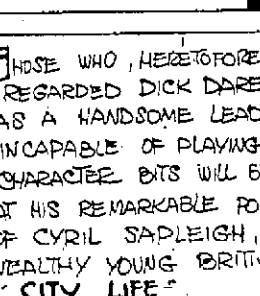 THOSE WHO, HERETOFORE
REGARDED DICK DARE
AS A HANDSOME LEAD
INCAPABLE OF PLAYING
CHARACTER BITS WILL B
AT HIS REMARKABLE PO
OF CYRIL SAPLEIGH,
WEALTHY YOUNG BRITI
"CITY LIFE".